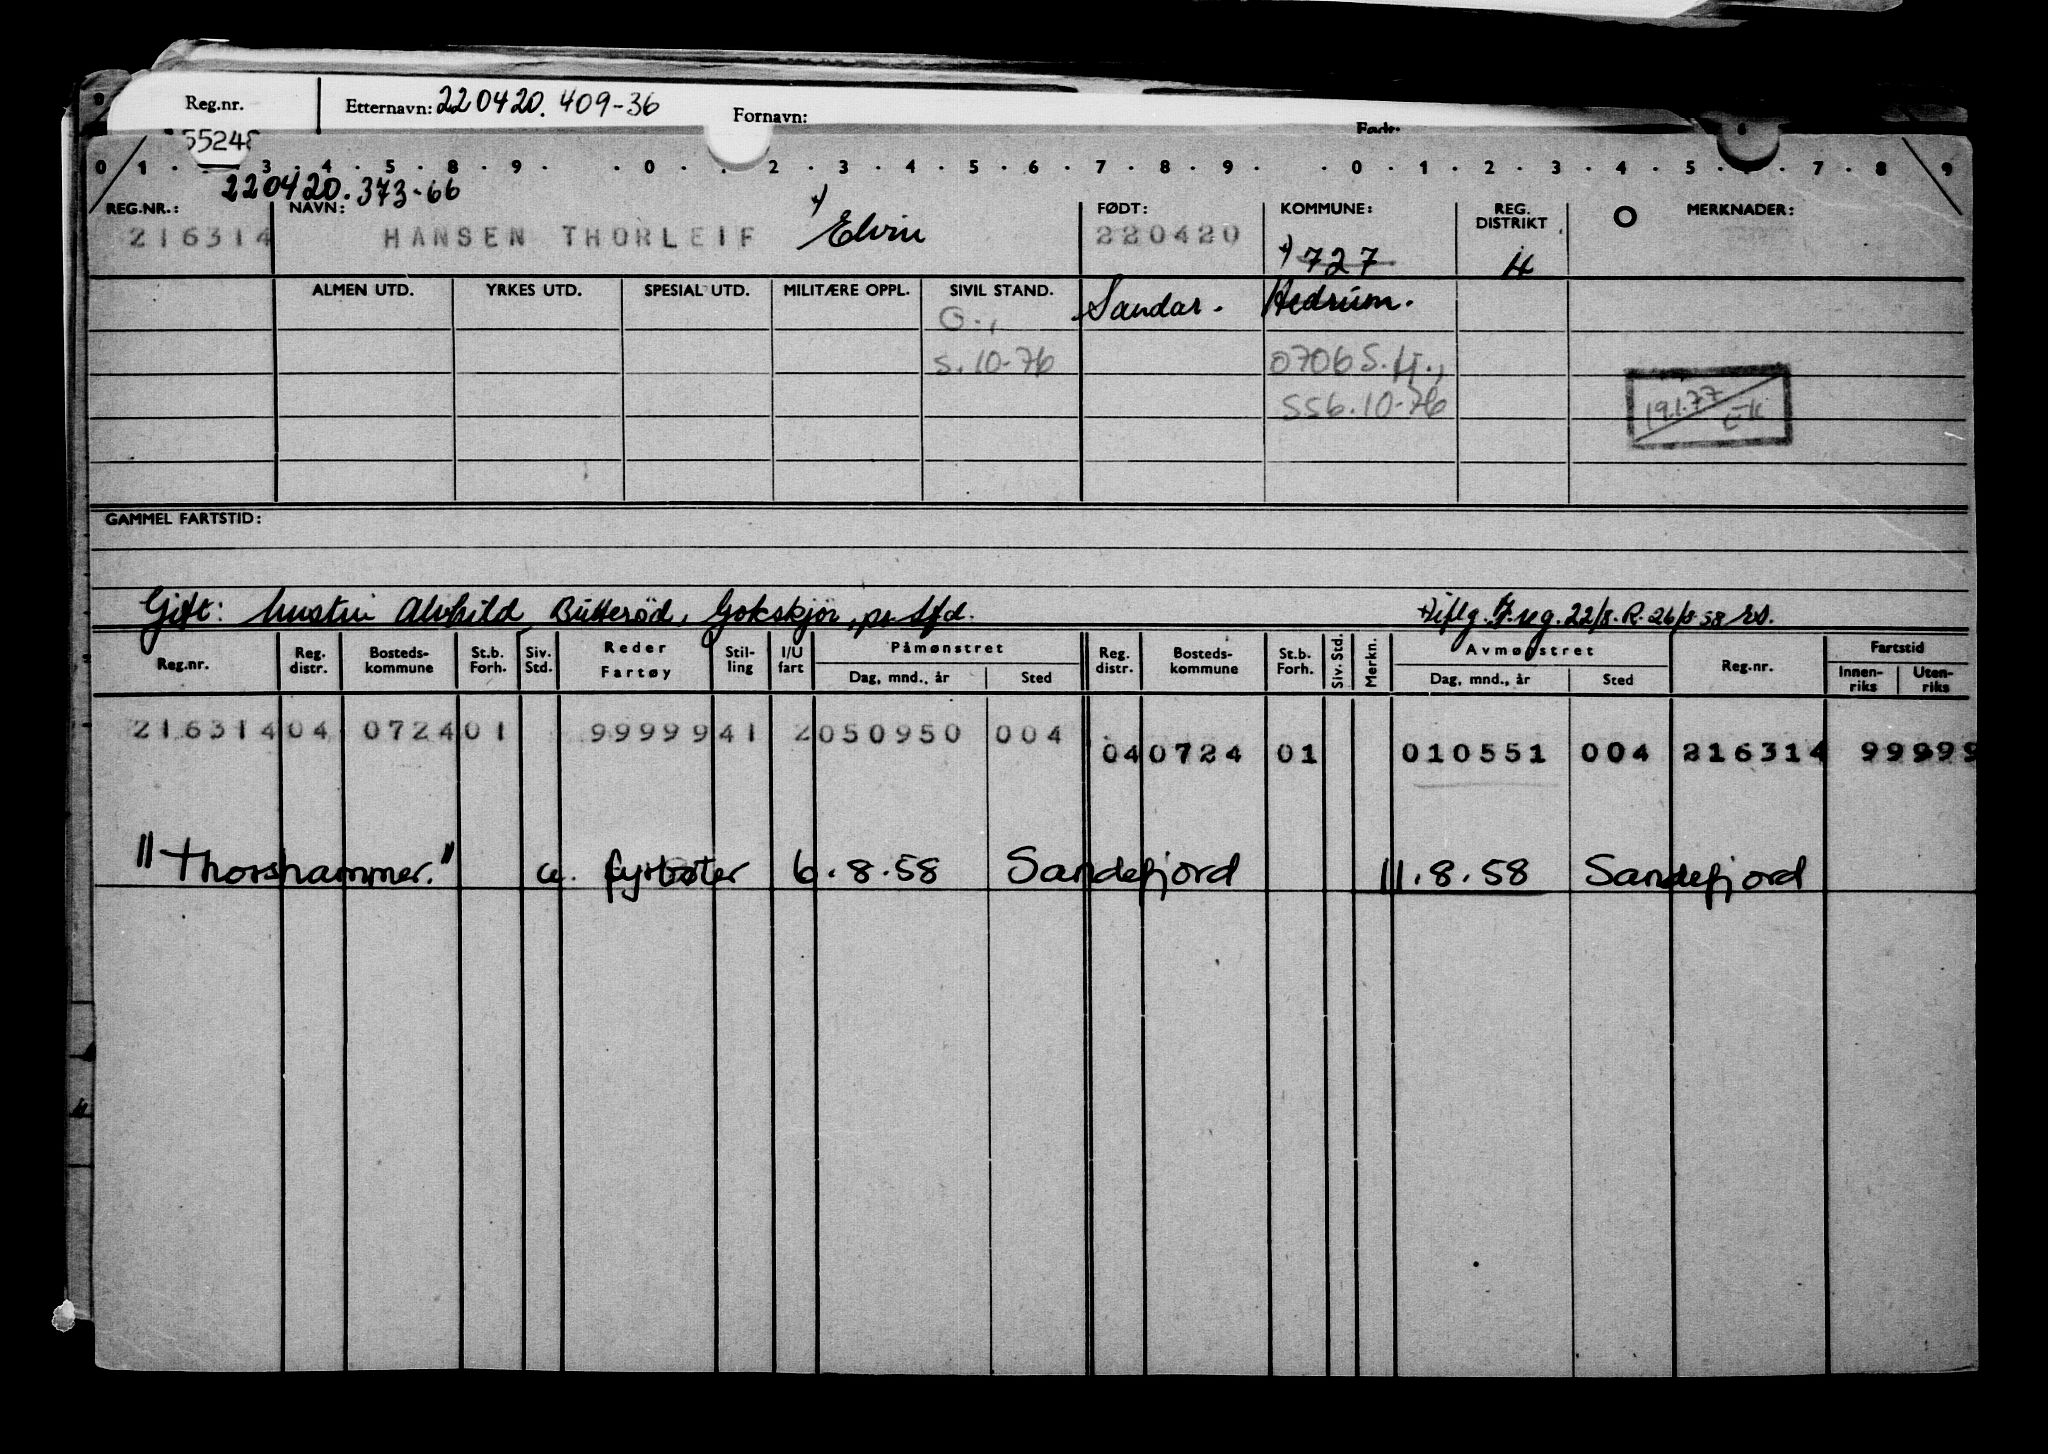 Reg.nr. Etternavn: 220420.409-36 Fornavn:
55248
0 1 . . 3 . 4 . 5 . 8 . 9 . . 0 . . 2 . 3 . . 6 . 7 . 8 . 9 . . 0 . 1 . 2 . 3 . 4 . 5 . . 7 . 8 9
220420.373-66
REG.NR.: NAVN: FØDT: KOMMUNE: REG. DISTRIKT MERKNADER:
216314 HANSEN THORLEIF +) Elvin 220420 +) 727 H
ALMEN UTD. YRKES UTD. SPESIAL UTD. MILITÆRE OPPL. SIVIL STAND. Sandar. Hedrum.
G.,
s. 10-76 0706 S.H.,
SS6.10-76
19.1.77 EK
GAMMEL FARTSTID:
Gift: hustru Alvhild, Butterød, Gokskjør, pr. Sfd. 22/8. R. 26/8 58
Reg.nr. Reg. distr. Bosteds-kommune St.b. Forh. Siv. Std. Reder Fartøy Stil-ling I/U fart Påmønstret Dag, mnd., år Sted Reg. distr. Bosteds-kommune St.b. Forh. Siv. Std. Merkn. Avmønstret Dag, mnd., år Sted Reg.nr. Fartstid Innen-riks Uten-riks
216314 04 0724 01 99999 41 2 050950 004 04 0724 01 010551 004 216314 99999
"Thorshammer." a. fyrbøter 6.8.58 Sandefjord 11.8.58 Sandefjord